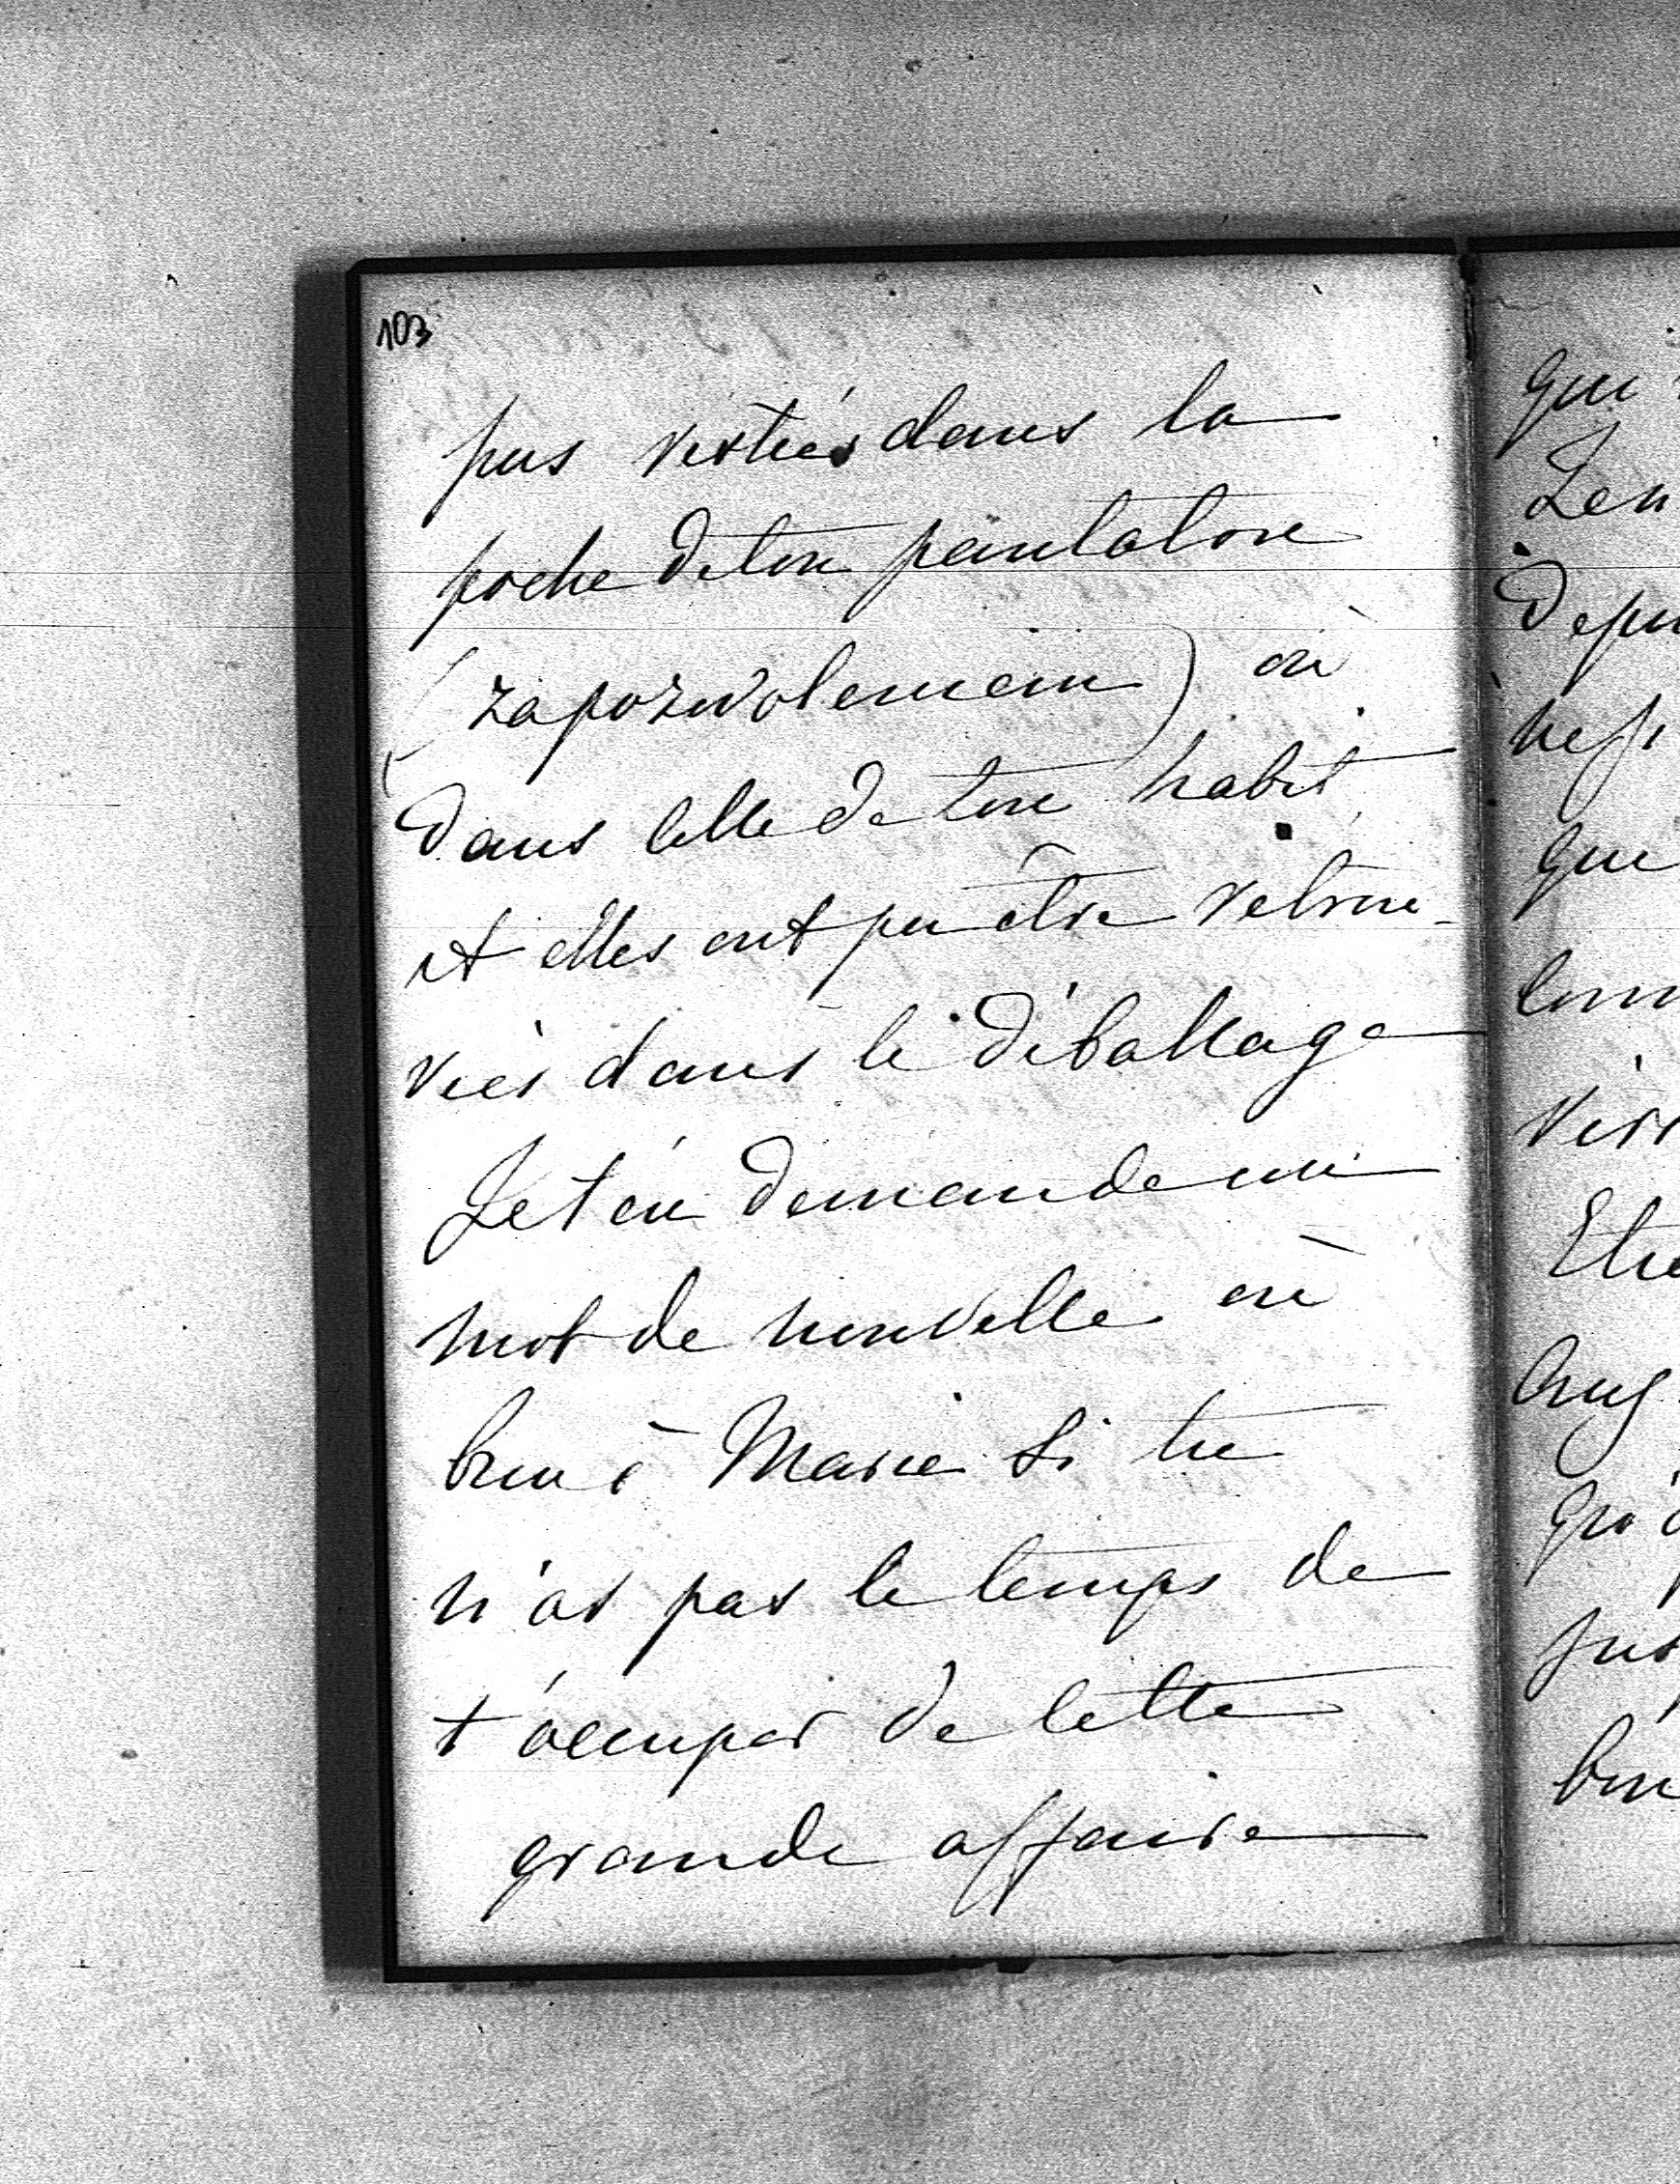 103
pus restées dans la
poche de ton pantalon
(za pozwoleniem) ou
dans celle de ton habit
et elles ont pu être retrou-
vées dans le déballage
Je t'en demande un
mot de nouvelle ou
bien à Marie si tu
n'as pas le temps de
t'occuper de cette
grande affaire